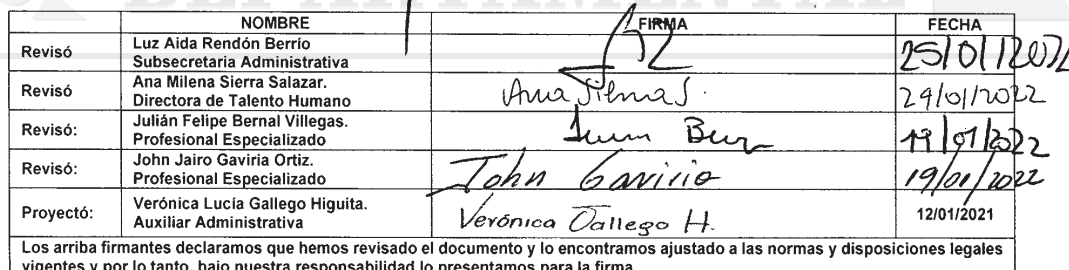 NOMBRE FIRMA FECHA
Revisó Luz Aida Rendón Berrío
Subsecretaria Administrativa 25/01/2022
Revisó Ana Milena Sierra Salazar.
Directora de Talento Humano Ana Silena S. 24/01/2022
Revisó: Julián Felipe Bernal Villegas.
Profesional Especializado 19/01/2022
Revisó: John Jairo Gaviria Ortiz.
Profesional Especializado John Gaviria 19/01/2022
Proyectó: Verónica Lucía Gallego Higuita.
Auxiliar Administrativa Verónica Gallego H. 12/01/2021
Los arriba firmantes declaramos que hemos revisado el documento y lo encontramos ajustado a las normas y disposiciones legales
vigentes y por lo tanto, bajo nuestra responsabilidad lo presentamos para la firma.